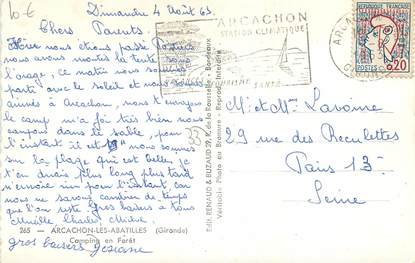 10 €
Dimanche 4 Août 63.
Chers Parents.
Hier nous étions passé
nous avons montés la tente sous
l'orage, ce matin nous sommes
parti avec le soleil et nous
arrivés à Arcachon, nous
le camp m'a foi très bien nous
campons dans le sable, pour
l'instant il est nous sommes
sur la plage qui est belle, je
t'en dirais plus long plus tard
n'envoie rien pour l'instant car
nous ne savons combien de temps
que l'on reste. gros baisers à tous
Mireille, Charles, Michel.
265 - ARCACHON-LES-ABATILLES (Gironde)
Camping en Forêt
gros baisers Josiane
33
Edit. RENAUD & BUZAUD 27, R. de la Rousselle - Bordeaux
Véritable Photo au Bromure - Reprod. Interdite
ARCACHON
STATION CLIMATIQUE
SANTÉ
ARCA
RÉPUBLIQUE FRANÇAISE
POSTES
0,20
M. et Me Lavoine
29 rue des Recullettes
Paris 13e
Seine